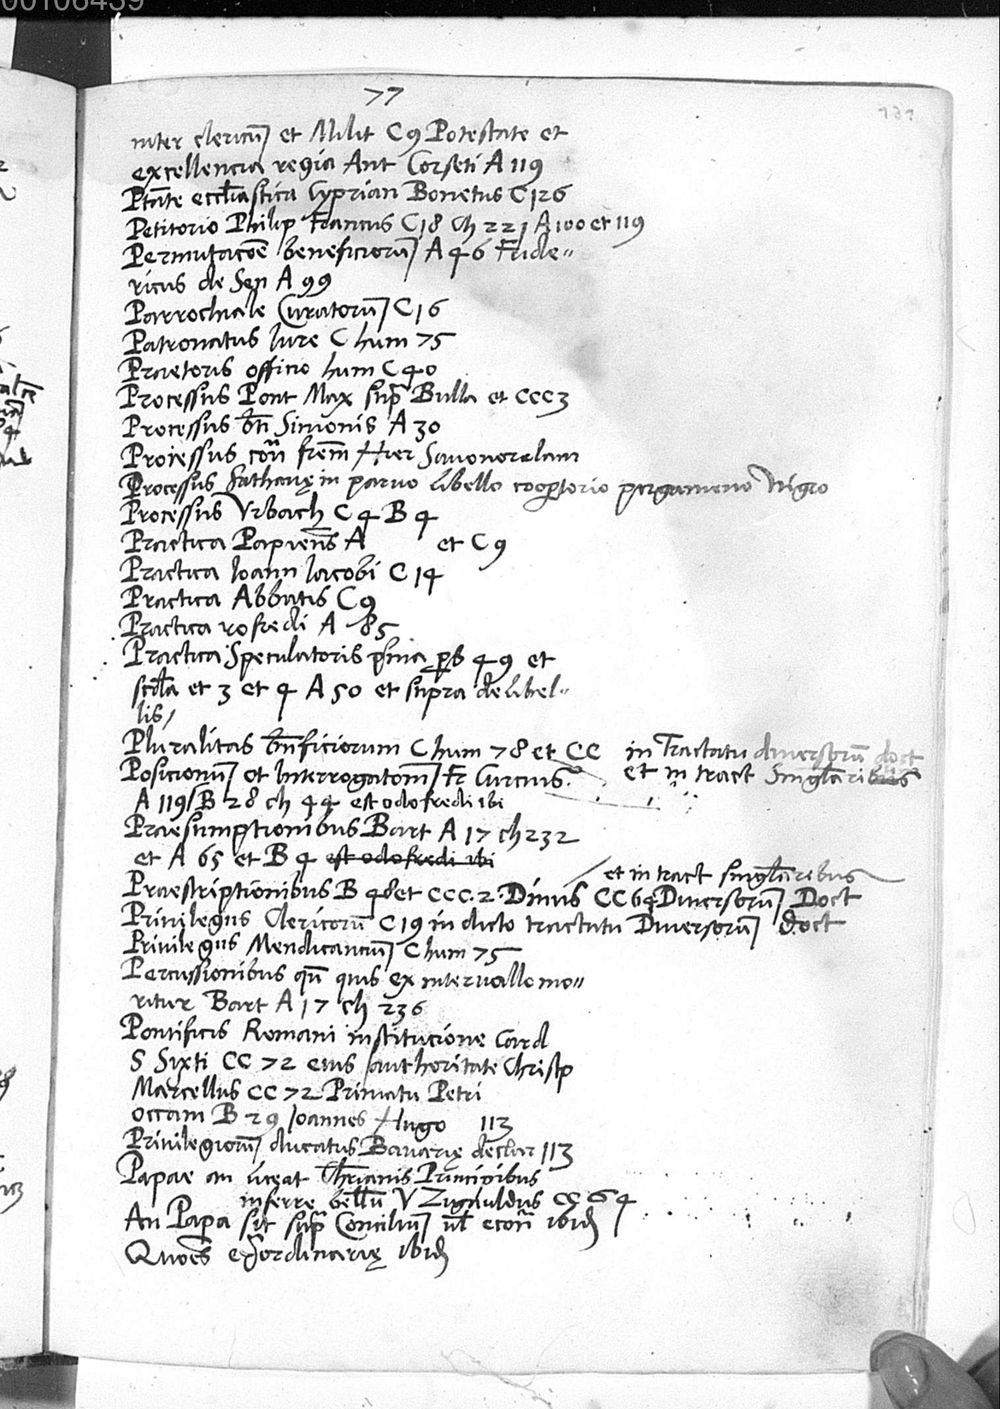 00106439
77
inter clericū et Milit C9 Potestate et
excellencia regia Ant Corseti A 119
Ptāte eccl̄iastica Cyprian Bonetus C126
Petitorio Philip Francus C18 Ch 221 A 100 et 119
Permutacoē beneficiorū A 46 Fride„
ricus de Sen A 99
Parrochiale Curatorū C16
Patronatus Iure C hum 75
Praetoris officio hum C40
Processus Pont Max sup̄ Bulla et CCC3
Processus bti Simonis A 30
Processus con̄ frem̄ Hier Sauonorolam
Processus in paruo libello coopertorio pergameno Nigro
Processus Vrbach C4 B4
Practica Papiens̄ A et C9
Practica Ioann Iacobi C14
Practica Abbatis C9
Practica rofredi A 85
Practica Speculatoris p̄ma ps 49 et
scd̄a et 3 et 4 A 50 et supra de libel„
lis/
Pluralitas bn̄ficiorum C hum 78 et CC in Tractatu diuersorū doct
Posicionū et Interrogatom̄ Fr Curcius et in tract Singl̄aribus
A 119/B 28 ch 44 est odofredi ibi
Praesumptionibus Bart A 17 ch 232
et A 65 et B4 est odofredi ibi
et in tract singl̄aribus
Praescriptionibus B 48 et CCC.2. Dinus CC 64 Diuersorū Doct
Priuilegiis Clericorū C19 in dicto tractatu Diuersorū doct
Priuilegiis Mendicanciū C hum 75
Percussionibus qn̄ quis ex interuallo mo„
ritur Bart A 17 ch 236
Pontificis Romani institucione Card
S Sixti CC 72 eius authoritate Christp
Marcellus CC 72 Primatu Petri
occam B 29 Ioannes Hugo 113
Priuilegiorū ducatus Bauarię declar 113
Papae an liceat Chr̄ianis Principibus
inferre bellū V Zugauldus CC 64
An Papa sit sup̄ Conciliū ul̄ econ̄ ibid
ibid